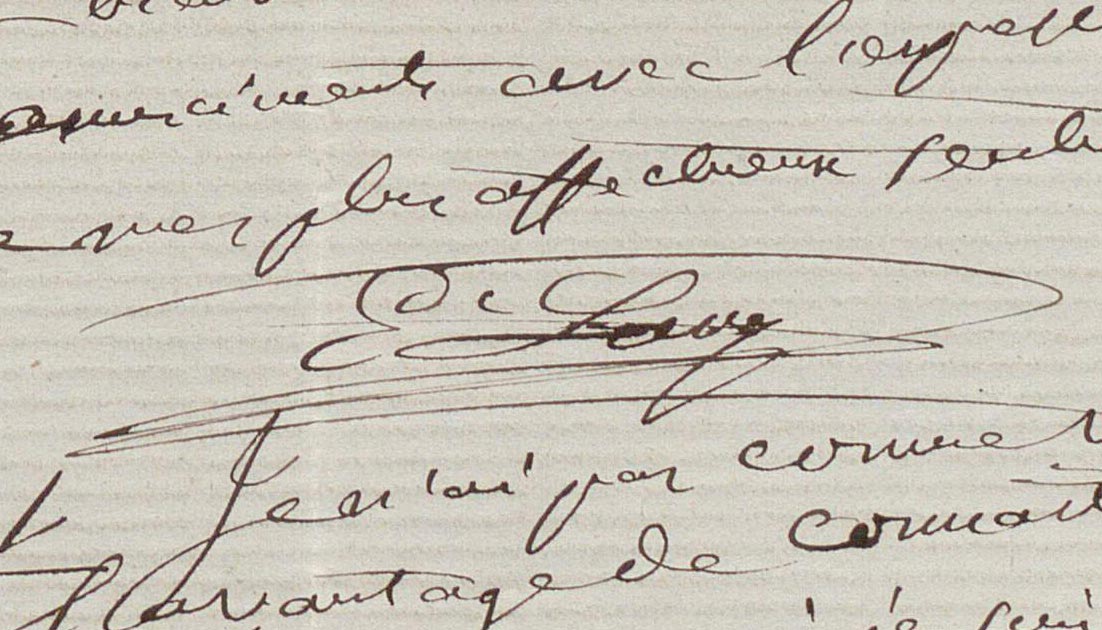 remerciments avec l'expres
mes plus affectueux senti
E. Louy
Je n'ai pas comme
l'avantage de connaît